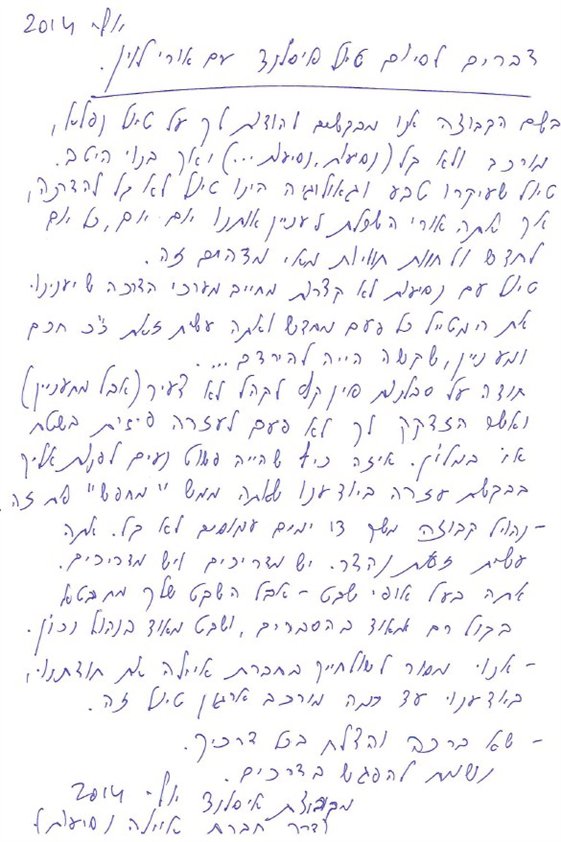 יולי 2014
דברים לסיום טיול איסלנד עם אורי לוין.
בשם הקבוצה אנו מבקשים להודות לך על טיול נפלא,
מורכב ולא קל (נסיעות, נסיעות...) ואיך בנוי היטב.
טיול שעיקרו טבע וגאולוגיה הינו טיול לא קל להדרכה,
אך אתה אורי השכלת לעניין אותנו יום יום, כל יום
לחדש ולחוות חוויות מאי מדהים זה.
טיול עם נסיעות לא קצרות מחייב מערכי הדרכה שיעניינו
את המטייל כל פעם מחדש ואתה עשית זאת כ"כ חכם
ומעניין, שקשה היה להירדם....
תודה על סבלנות אין קץ לקהל לא צעיר (אבל מתעניין)
ואשר הזדקק לך לא פעם לעזרה פיזית בשטח
או במלון. איזה כיף שהיה פשוט נעים לפנות אליך
בבקשת עזרה ביודענו שאתה ממש "מחפש" את זה.
- ניהול קבוצה משך 13 ימים עמוסים לא קל. אתה
עשית זאת נהדר. יש מדריכים ויש מדריכים.
אתה בעל אופי שקט - אבל השקט שלך מתבטא
בקול רם מאוד בהסברים, ושקט מאוד בניהול נכון.
- אנו מסור לשולחייך בחברת איילה את תודתנו,
ביודענו עד כמה מורכב ארגון טיול זה.
- שא ברכה והצלח בכל דרכיך.
נשמח להפגש בדרכים.
מקבוצת איסלנד יולי 2014
חברת איילה נסיעות